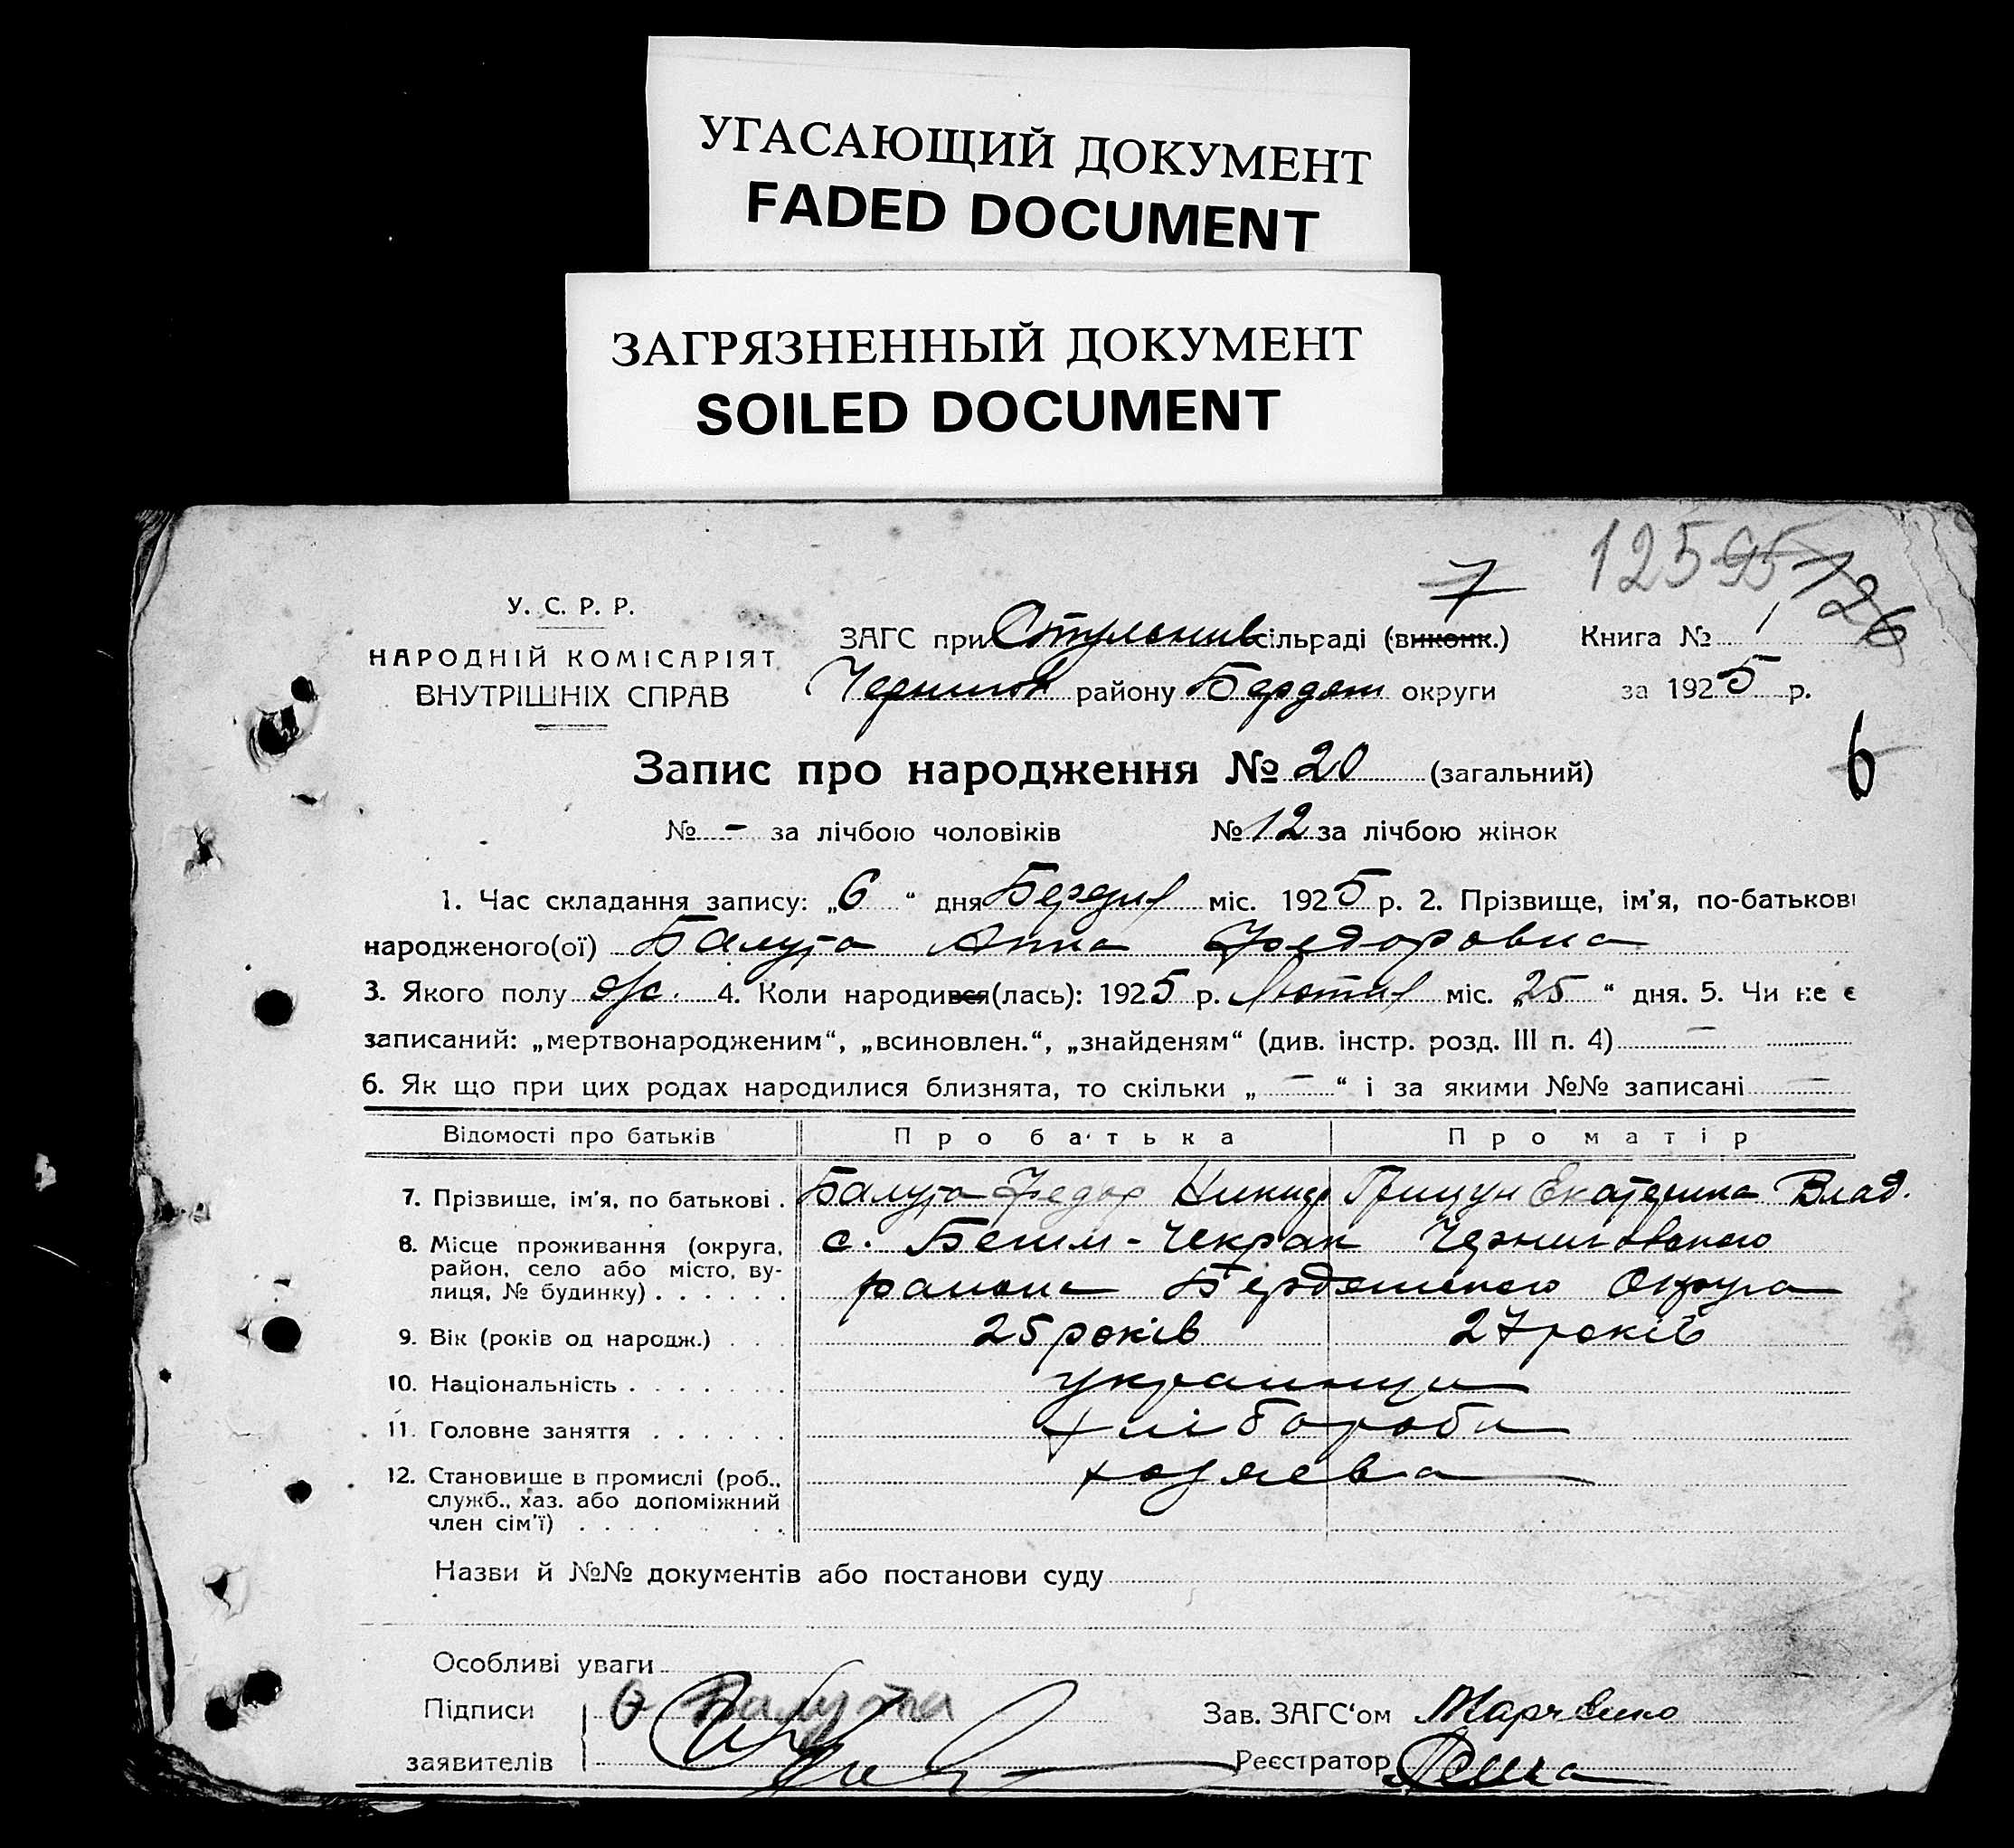 УГАСАЮЩИЙ ДОКУМЕНТ
FADED DOCUMENT
ЗАГРЯЗНЕННЫЙ ДОКУМЕНТ
SOILED DOCUMENT
12595
126
7
У. С. Р. Р.
НАРОДНІЙ КОМІСАРІЯТ
ВНУТРІШНІХ СПРАВ
ЗАГС при сільраді (виконк.) Книга № 1
Черниговс району Бердян округи за 1925 р.
6
Запис про народження № 20 (загальний)
№ - за лічбою чоловіків № 12 за лічбою жінок
1. Час складання запису: „6“ дня міс. 1925 р. 2. Прізвище, ім'я, по-батькові
народженого(ої) Балута Анна Федоровна
3. Якого полу ж. 4. Коли народився(лась): 1925 р. Лютий міс. „25“ дня. 5. Чи не є
записаний: „мертвонародженим“, „всиновлен.“, „знайденям“ (див. інстр. розд. III п. 4) —
6. Як що при цих родах народилися близнята, то скільки „—“ і за якими №№ записані —
Відомості про батьків Про батька Про матір
7. Прізвище, ім'я, по батькові . Балута Федор Никид Грицун Екатерина Влад.
8. Місце проживання (округа, с. Бегим-Чекрак Черниговского
район, село або місто, ву-
лиця, № будинку) . . . . . . района Бердянского Округа
9. Вік (років од народж.) . . . 25 років 27 років
10. Національність . . . . . . . украинци
11. Головне заняття . . . . . . хліборобы
12. Становище в промислі (роб., хозяева
служб., хаз. або допоміжний
член сім'ї) . . . . . . .
Назви й №№ документів або постанови суду
Особливі уваги
Підписи Балута Зав. ЗАГС'ом Марченко
заявителів Реєстратор